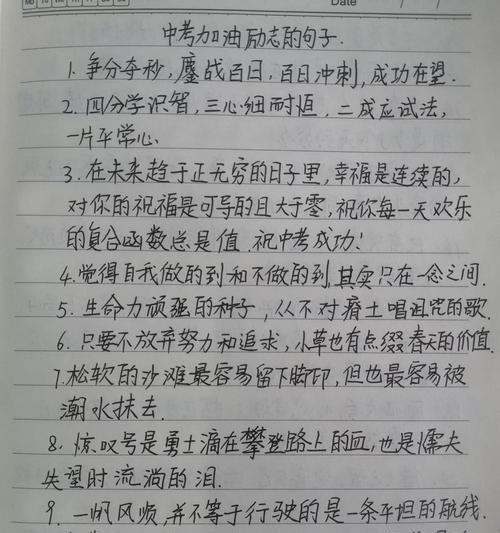 Date
中考加油励志的句子.
1. 争分夺秒，鏖战百日，百日冲刺，成功在望.
2. 四分学识智，三心细而恒，二成应试法，
一片平常心.
3. 在未来趋于正无穷的日子里，幸福是连续的，
对你的祝福是可导的且大于零，祝你每一天欢乐
的复合函数总是值.祝中考成功！
4. 觉得自我做的到和不做的到，其实只在一念之间.
5. 生命力顽强的种子，从不对瘠土唱诅咒的歌.
6. 只要不放弃努力和追求，小草也有点缀春天的价值.
7. 松软的沙滩最容易留下脚印，但也最容易被
潮水扶去.
8. 惊叹号是勇士滴在攀登路上的血，也是懦夫
失望时流淌的泪.
9. 一帆风顺，并不等于行驶的是一条平坦的航线.